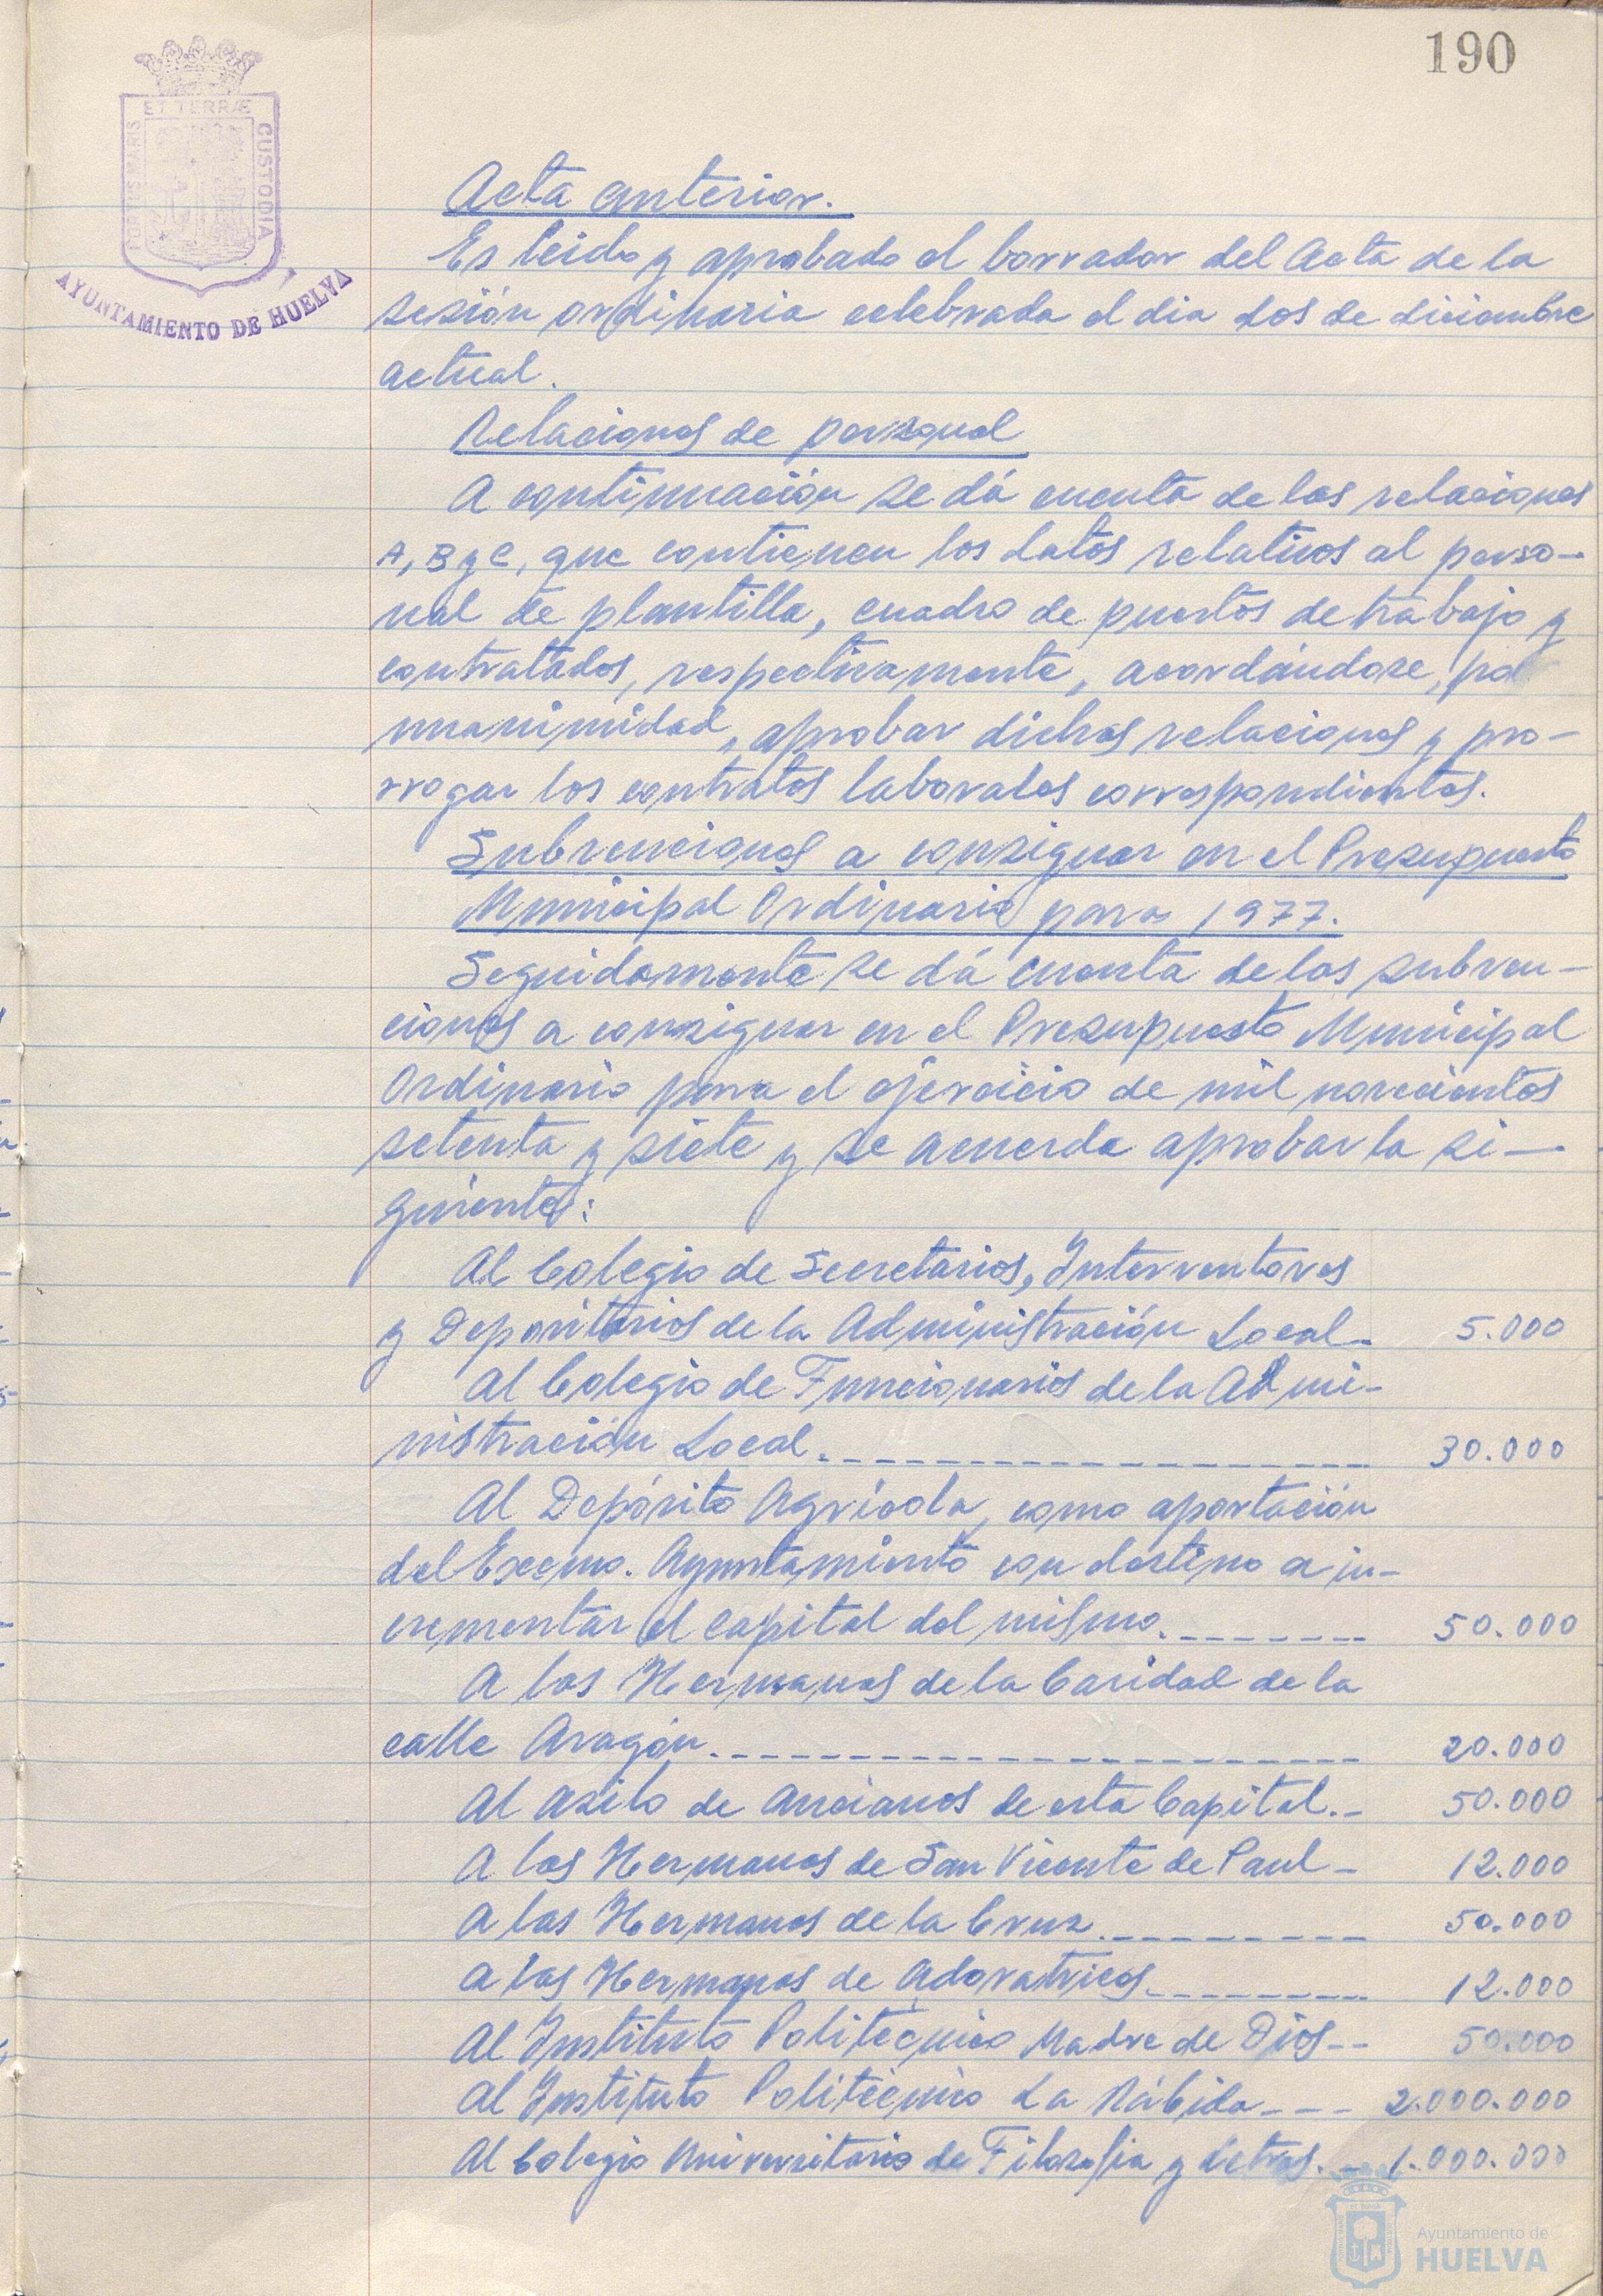 190
PORTUS MARIS ET TERRÆ CUSTODIA
AYUNTAMIENTO DE HUELVA
Acta anterior.
Es leido y aprobado el borrador del Acta de la
sesión ordinaria celebrada el dia dos de diciembre
actual.
Relaciones de personal
A continuación se dá cuenta de las relaciones
A, B y C, que contienen los datos relativos al perso-
nal de plantilla, cuadro de puestos de trabajo y
contratados, respectivamente, acordándose, por
unanimidad, aprobar dichas relaciones y pro-
rrogar los contratos laborales correspondientes.
Subvenciones a consignar en el Presupuesto
Municipal Ordinario para 1977.
Seguidamente se dá cuenta de las subven-
ciones a consignar en el Presupuesto Municipal
Ordinario para el ejercicio de mil novecientos
setenta y siete y se acuerda aprobar la si-
guiente:
Al Colegio de Secretarios, Interventores
y Depositarios de la Administración Local- 5.000
Al Colegio de Funcionarios de la Admi-
nistración Local.------------------- 30.000
Al Depósito Agrícola, como aportación
del Excmo. Ayuntamiento con destino a in-
crementar el capital del mismo.------- 50.000
A las Hermanas de la Caridad de la
calle Aragón.---------------------- 20.000
Al Asilo de Ancianos de esta Capital.- 50.000
A las Hermanas de San Vicente de Paul- 12.000
A las Hermanas de la Cruz.--------- 50.000
A las Hermanas de Adoratrices-------- 12.000
Al Instituto Politécnico Madre de Dios-- 50.000
Al Instituto Politécnico La Rábida--- 2.000.000
Al Colegio Universitario de Filosofia y Letras.-- 1.000.000
Ayuntamiento de
HUELVA